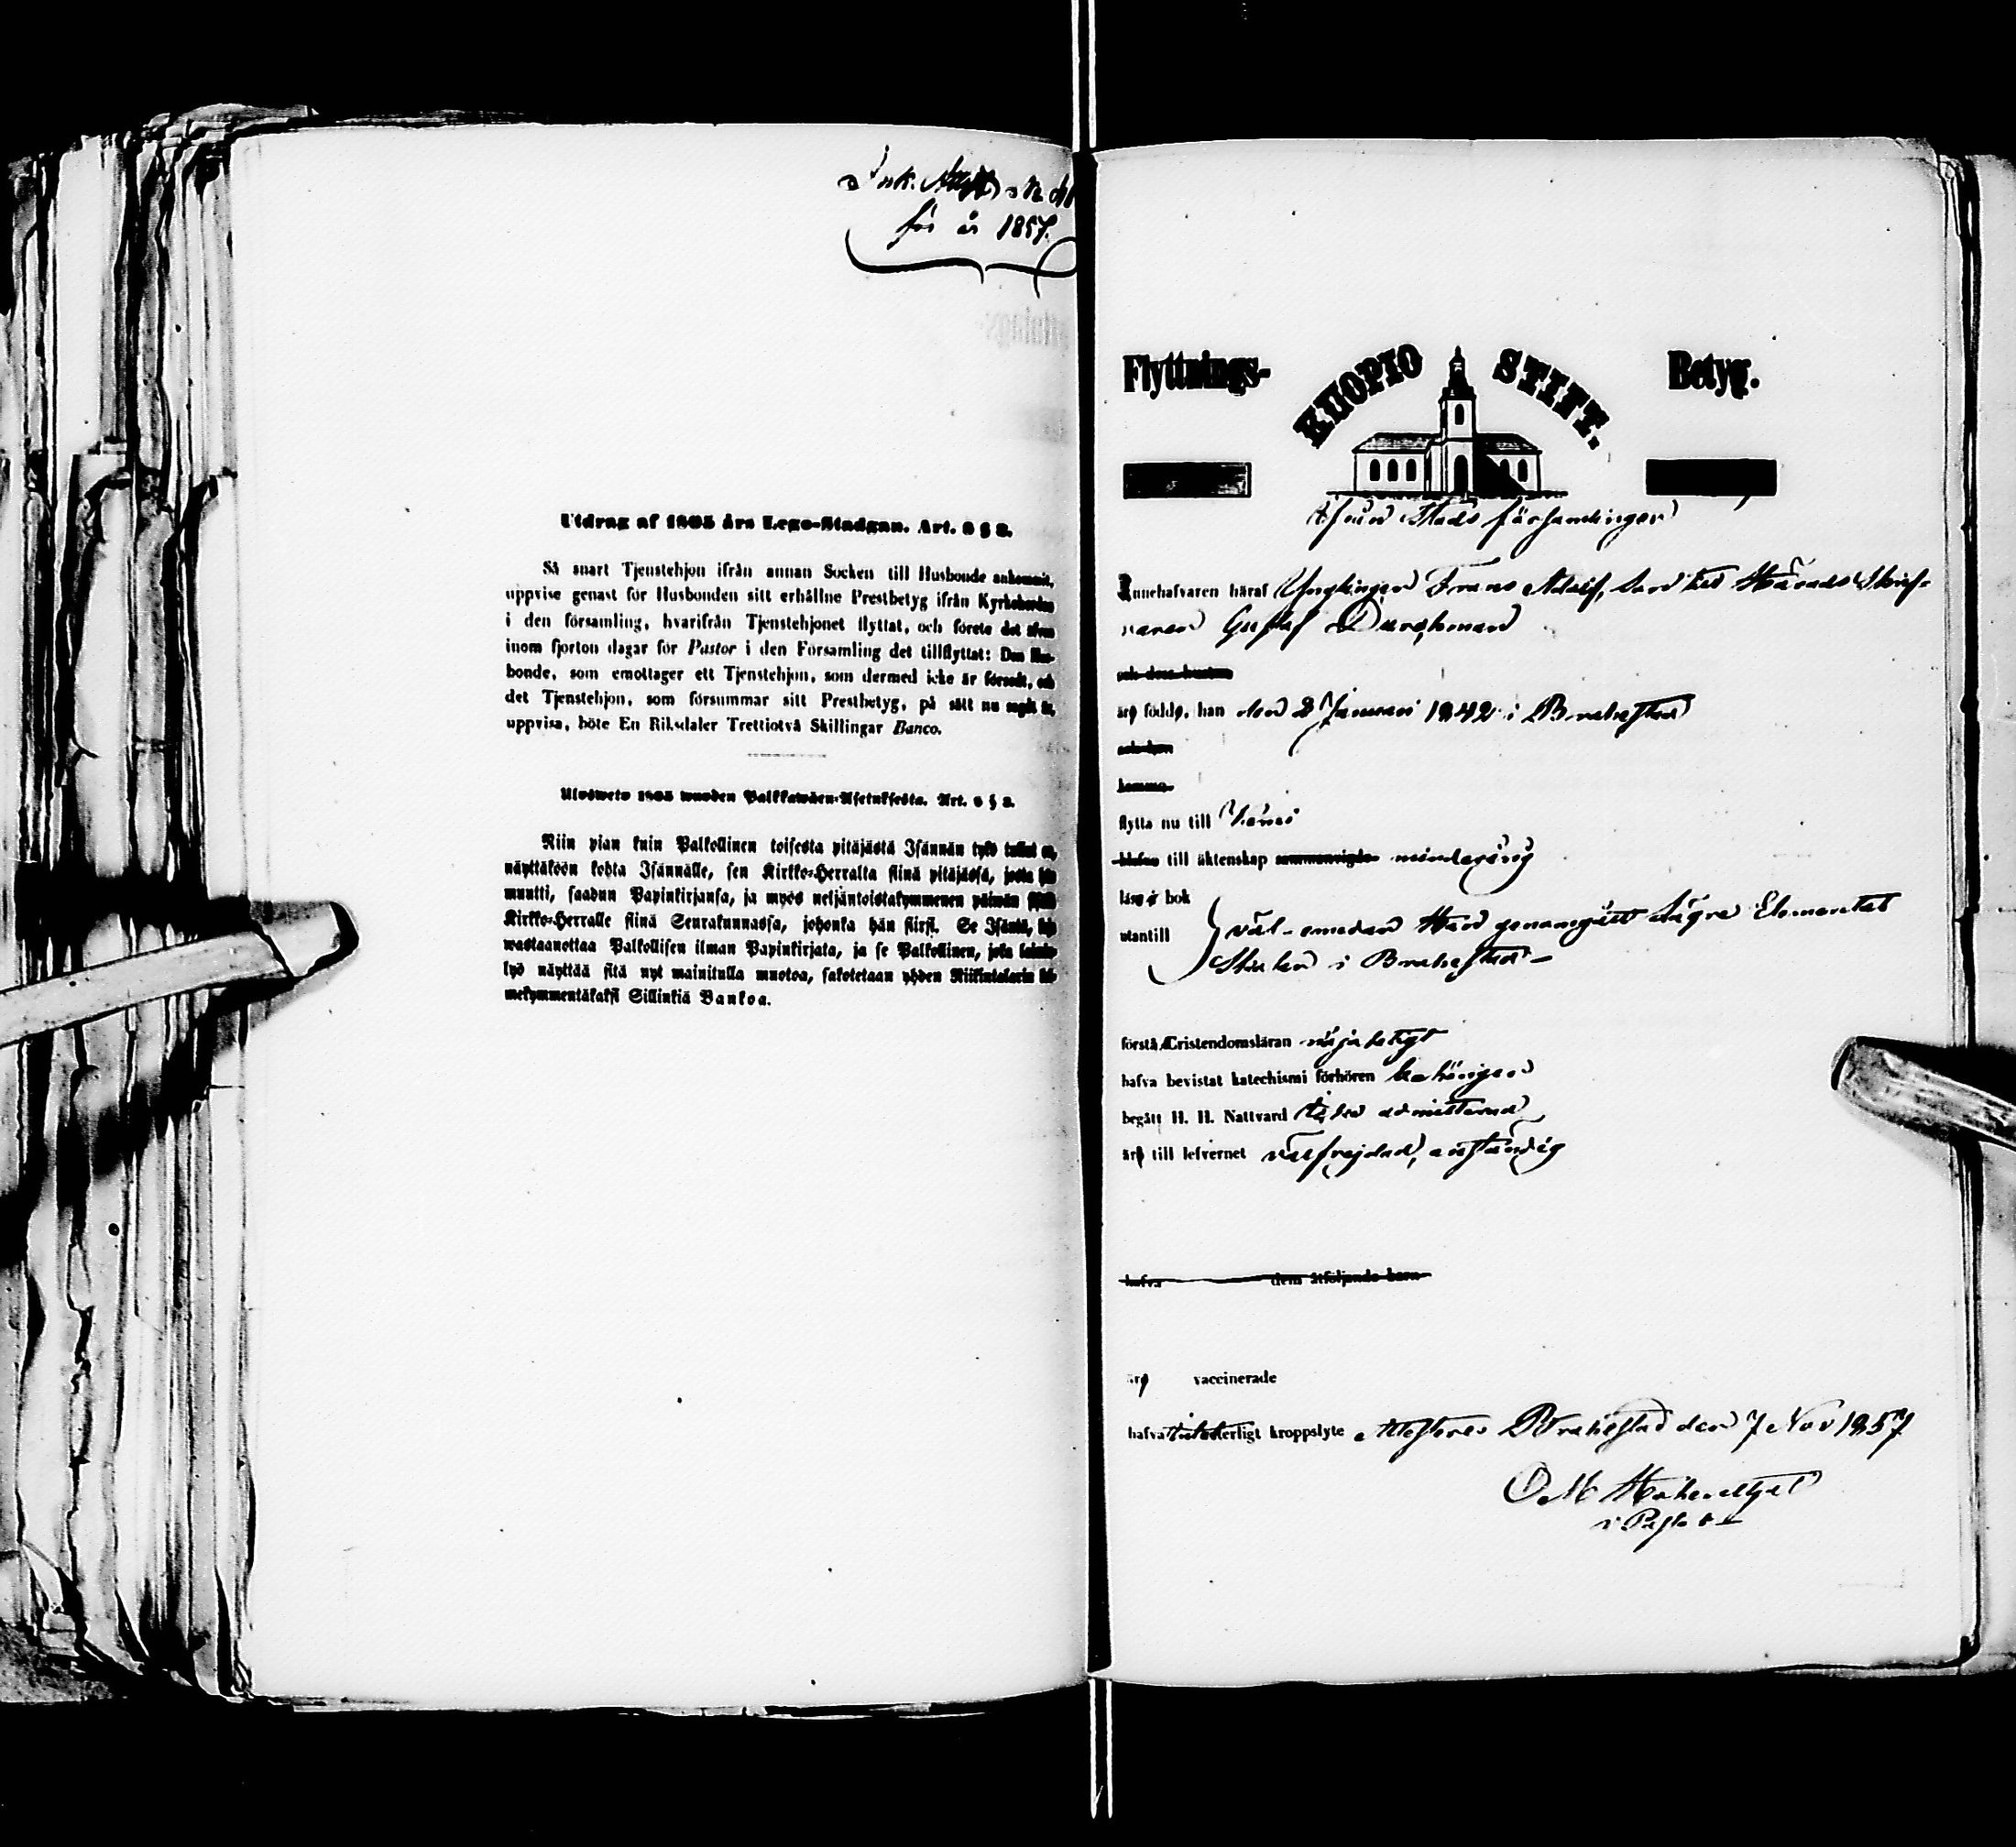 Ink. Att. N:o
för år 1857.
Utdrag af 1805 års Lego-Stadgan. Art. 6 § 2.
Så snart Tjenstehjon ifrån annan Socken till Husbonde ankommit,
uppvise genast för Husbonden sitt erhållne Prestbetyg ifrån Kyrkoherden
i den församling, hvarifrån Tjenstehjonet flyttat, och förete det äfven
inom fjorton dagar för Pastor i den Församling det tillflyttat: Den Hus-
bonde, som emottager ett Tjenstehjon, som dermed icke är försedt, och
det Tjenstehjon, som försummar sitt Prestbetyg, på sätt nu sagdt är,
uppvisa, böte En Riksdaler Trettiotvå Skillingar Banco.
Ulosweto 1805 wuoden Palkkawäen-Asetuksesta. Art. 6 § 2.
Niin pian kuin Palkollinen toisesta pitäjästä Isännän tykö tullut on,
näyttäköön kohta Isännälle, sen Kirkko-Herralta siinä pitäjässä, josta hän
muutti, saadun Papinkirjansa, ja myös neljäntoistakymmenen päiwän
Kirkko-Herralle siinä Seurakunnassa, johonka hän siirsi. Se Isäntä, joka
wastaanottaa Palkollisen ilman Papinkirjata, ja se Palkollinen, joka laimin-
lyö näyttää sitä nyt mainitulla muotoa, sakotetaan yhden Riikintalarin kol-
mekymmentäkaksi Sillinkiä Bankoa.
Flyttnings- KUOPIO STIFT. Betyg.
ifrån Stads församlingen
Innehafvaren häraf Ynglingen Frans Adolf, Son till Härads Skrif-
varen Gustaf Durchman
och dess hustru
äro födde, han den 2 Januari 1842 i Brahestad
och hon
komma
flytta nu till
hafva till äktenskap sammanvigde minderårig
läsa i bok
utantill } väl - emedan Han genomgått Lägre Elementar
Skolan i Brahestad
förstå Cristendomsläran nöjaktigt
hafva bevistat katechismi förhören behörigen
begått H. H. Nattvard icke admitterad
äro till lefvernet välfrejdad, anständig
hafva dem åtföljande barn
äro vaccinerade
hafva kroppslyte Attesteras Brahestad den 7 Nov 1857